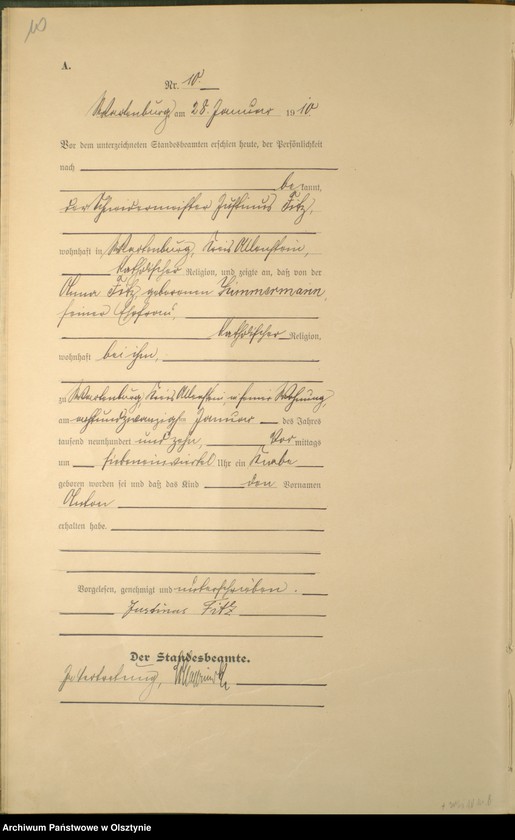 10
A.
Nr. 10.
Wartenburg am 28. Januar 1910.
Vor dem unterzeichneten Standesbeamten erschien heute, der Persönlichkeit
nach
bekannt,
der Schneidermeister Justinus Fitz,
wohnhaft in Wartenburg, Kreis Allenstein,
katholischer Religion, und zeigte an, daß von der
Anna Fitz geborenen Zimmermann,
seiner Ehefrau,
katholischer Religion,
wohnhaft bei ihm,
zu Wartenburg, Kreis Allenstein, in seiner Wohnung,
am achtundzwanzigsten Januar des Jahres
tausend neunhundert und zehn, Vormittags
um siebeneinviertel Uhr ein Knabe
geboren worden sei und daß das Kind den Vornamen
Anton
erhalten habe.
Vorgelesen, genehmigt und unterschrieben.
Justinus Fitz
Der Standesbeamte.
In Vertretung,
Archiwum Państwowe w Olsztynie